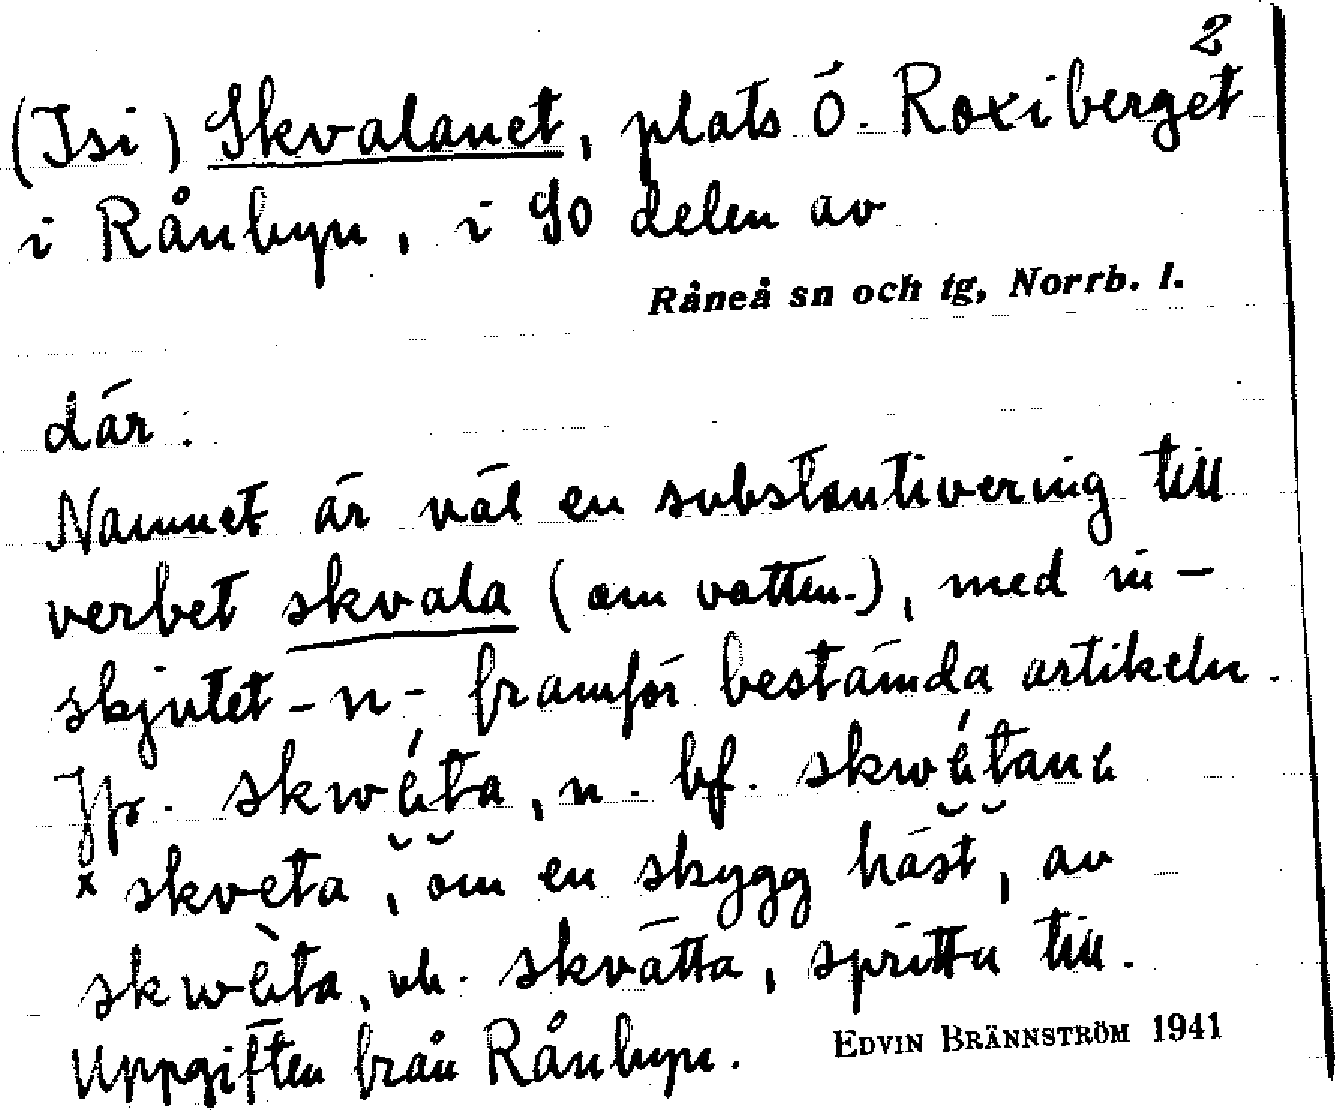 2
(Isi) Skvalanet, plats Ö. Roxiberget
i Rånbyn, i SO delen av
Råneå sn och tg, Norrb. l.
där.
Namnet är väl en substantivering till
verbet skvala (om vatten.), med in-
skjutet -n- framför bestämda artikeln.
Jfr. skwéta, n. bf. skwétane
x skveta, om en skygg häst, av
skwèta, vb. skvätta, spritta till.
Uppgiften från Rånbyn.
EDVIN BRÄNNSTRÖM 1941